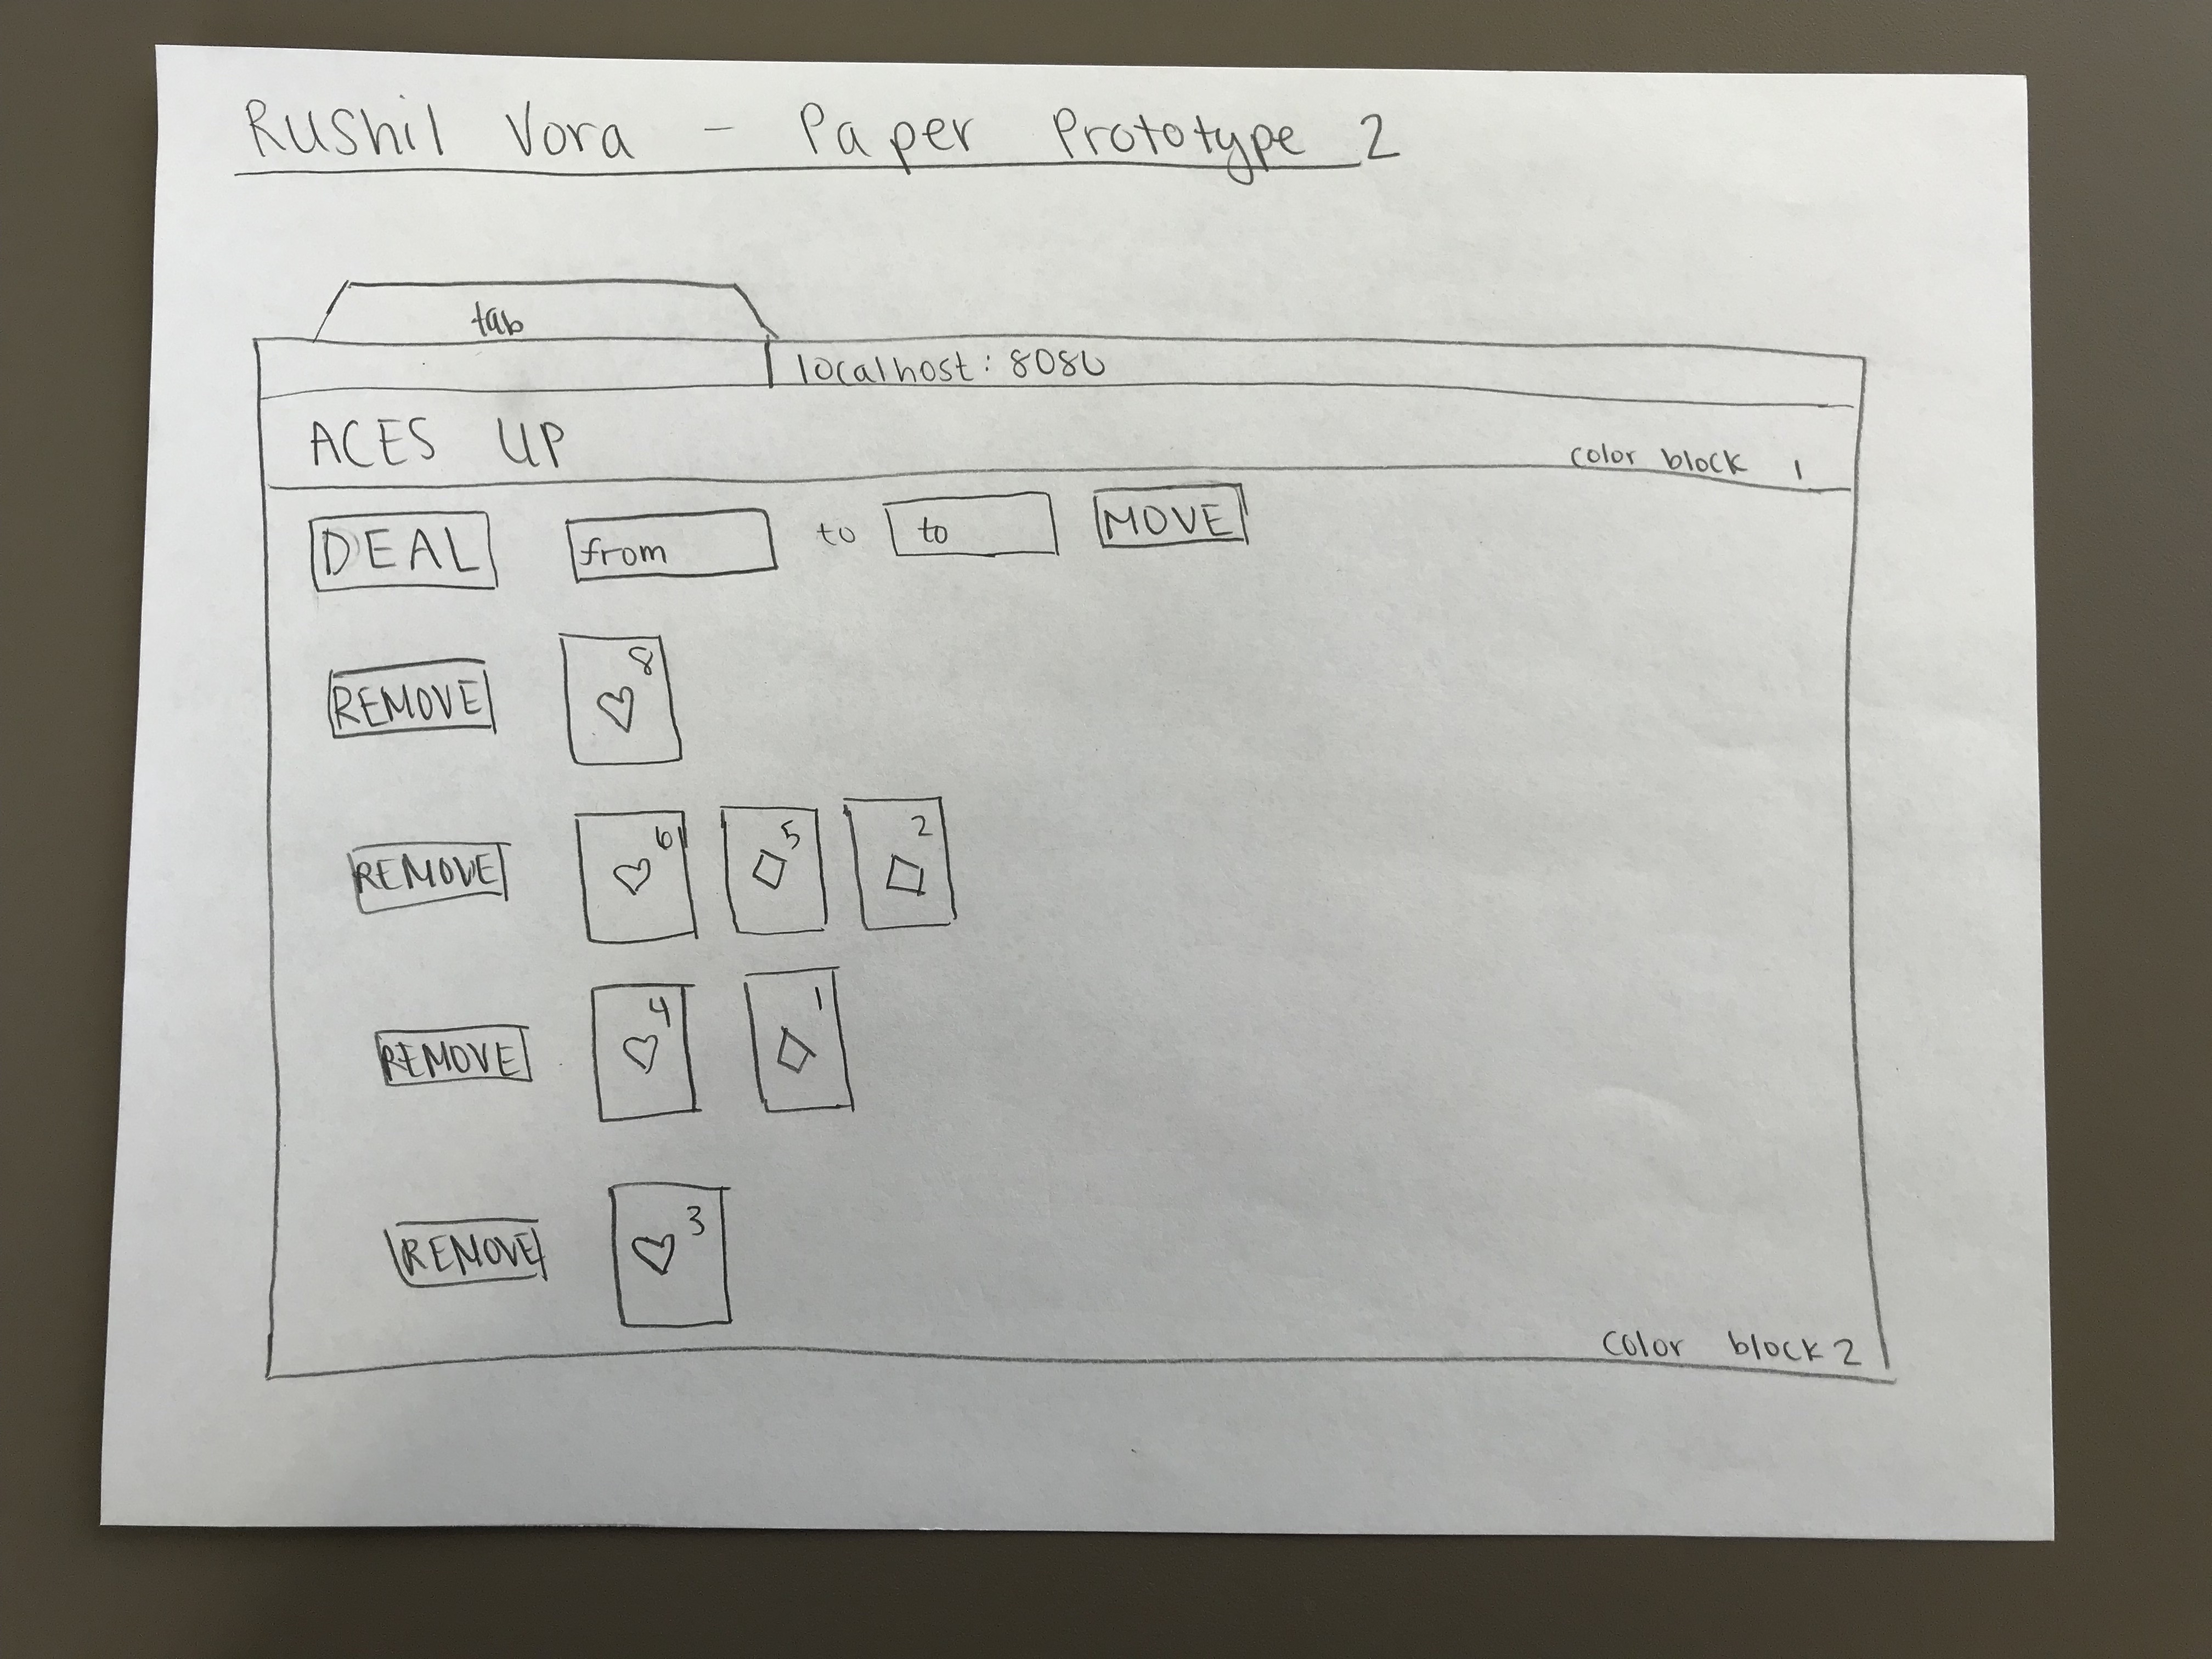 Rushil Vora - Paper Prototype 2
tab
localhost: 8080
ACES UP
color block 1
DEAL from to to MOVE
REMOVE 8
REMOVE 6 5 2
REMOVE 4 1
REMOVE 3
color block 2